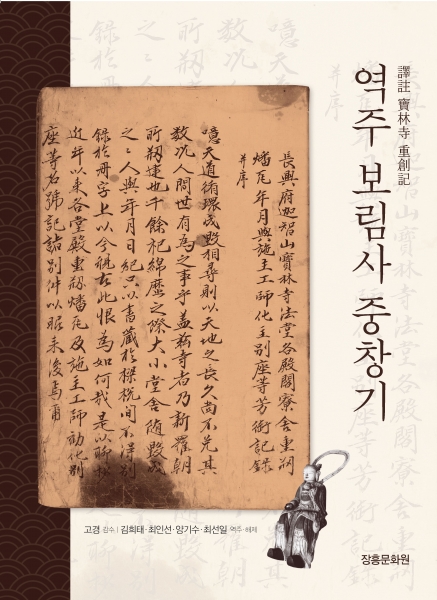 譯註 寶林寺 重創記
역주 보림사 중창기
長興府迦智山寶林寺法堂各殿閣寮舍重刱
燔瓦年月與施主工師化主別座等芳啣記錄
并序
噫天道循環成毁相尋則以天地之長久尚不免其
數况人間世有為之事乎盖玆寺者乃新羅朝
所刱建也千餘祀綿歷之際大小堂舍随毁
之之人與年月日紀之以書藏於樑間不得別
錄於冊字上以今観古此恨為如何哉是以聊
近年以来各堂殿重刱燔瓦及施主工師化別
座等名號記誌別件以昭来後焉
고경 감수 | 김희태·최인선·양기수·최선일 역주·해제
장흥문화원